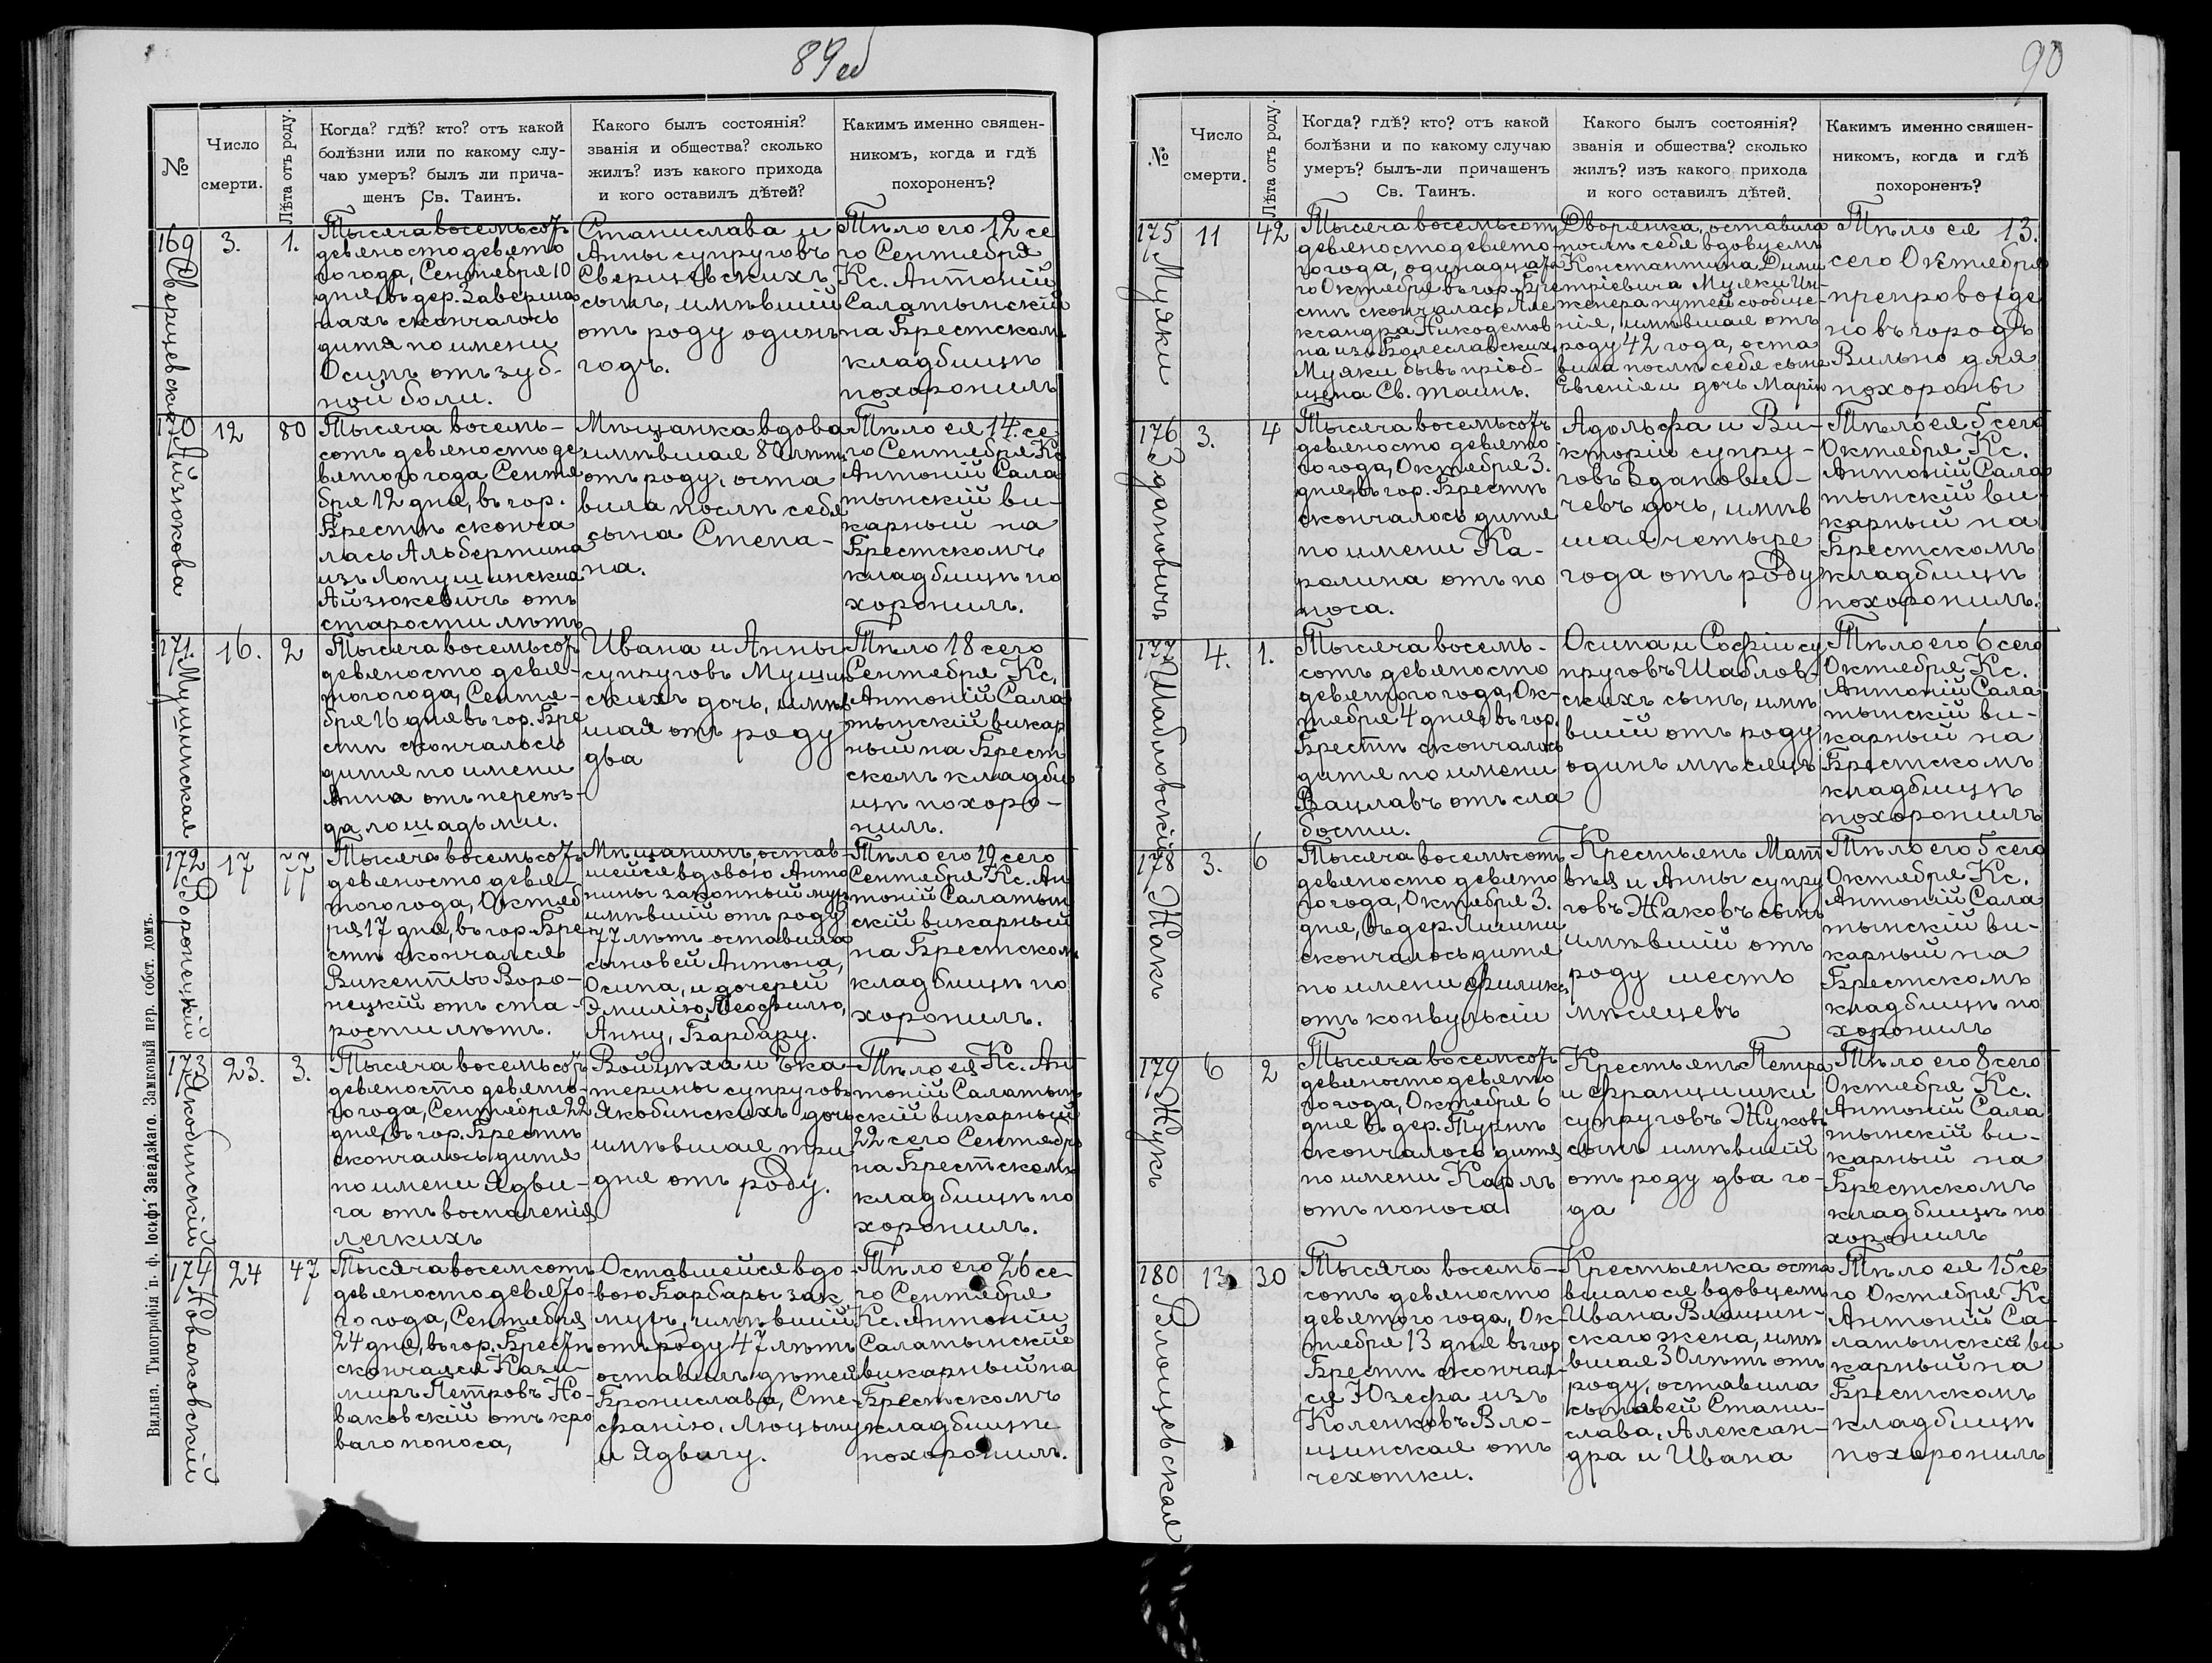 89 об
№
Число
смерти.
Лѣта отъ роду.
Когда? гдѣ? кто? отъ какой
болѣзни или по какому слу-
чаю умеръ? былъ ли прича-
щенъ Св. Таинъ.
Какого былъ состоянія?
званія и общества? сколько
жилъ? изъ какого прихода
и кого оставилъ дѣтей?
Какимъ именно священ-
никомъ, когда и гдѣ
похороненъ?
169
3.
1.
Тысяча восемьсотъ
девяносто девято
го года, Сентября 10
дня, въ дер. Заверша
нахъ скончалось
дитя по имени
Осипъ отъ зуб-
ной боли.
Станислава и
Анны супруговъ
Сверщевскихъ
сынъ, имѣвшій
отъ роду одинъ
годъ.
Тѣло его 12 се
го Сентября
Кс. Антоній
Салатынскій
на Брестскомъ
кладбищѣ
похоронилъ
170 Айзюкова
12
80
Тысяча восемь-
сотъ девяносто де
вятого года Сентя
бря 12 дня, въ гор.
Брестѣ сконча
лась Альбертина
изъ Лопушинскихъ
Айзюкевичъ отъ
старости лѣтъ
Мѣщанка вдова
имѣвшая 80 лѣтъ
отъ роду, оста
вила послѣ себя
сына Степа-
на.
Тѣло ея 14. се
го Сентября Кс
Антоній Сала
тынскій ви-
карный на
Брестскомъ
кладбищѣ по
хоронилъ.
171. Мушинская
16.
2
Тысяча восемьсотъ
девяносто девя-
того года, Сентя-
бря 16 дня въ гор. Бре
стѣ скончалось
дитя по имени
Анна отъ переѣз-
да лошадьми.
Ивана и Анны
супруговъ Мушин
скихъ дочь, имѣв
шая отъ роду
два
Тѣло 18 сего
Сентября Кс.
Антоній Сала
тынскій викар
ный на Брест
скомъ кладби
щѣ похоро-
нилъ.
172 Воронецкій
17
77
Тысяча восемьсотъ
девяносто девя-
того года, Октяб
ря 17 дня, въ гор. Бре
стѣ скончался
Викентъ Воро-
нецкій отъ ста-
рости лѣтъ.
Мѣщанинъ, остав-
шейся вдовою Анто
нины законный мужъ
имѣвшій отъ роду
77 лѣтъ оставилъ
сыновей Антона,
Осипа, и дочерей
Эмилію, Теофилю,
Анну, Барбару.
Тѣло его 19 сего
Сентября Кс. Ан
тоній Салатын
скій викарный
на Брестскомъ
кладбищѣ по
хоронилъ.
173 Якобинскій
23.
3.
Тысяча восемьсотъ
девяносто девято-
го года, Сентября 22
дня, въ гор. Брестѣ
скончалось дитя
по имени Ядви-
га отъ воспаленія
легкихъ
Войцѣха и Ека-
терины супруговъ
Якобинскихъ дочь
имѣвшая три
дня отъ роду.
Тѣло ея Кс. Ан
тоній Салатын
скій викарный
22 сего Сентября
на Брестскомъ
кладбищѣ по
хоронилъ.
174 Новаковскій
24
47
Тысяча восемсотъ
девяносто девято-
го года, Сентября
24 дня, въ гор. Брестѣ
скончался Кази-
миръ Петровъ Но-
ваковскій отъ кро
ваго поноса,
Оставшейся вдо-
вою Барбары зак.
мужъ, имѣвшій
отъ роду 47 лѣтъ
оставилъ дѣтей
Бронислава, Сте-
фанію, Люцыну
и Ядвигу.
Тѣло его 26 се-
го Сентября
Кс. Антоній
Салатынскій
викарный на
Брестскомъ
кладбищѣ
похоронилъ.
Вильна. Типографія и. ф. Іосифі Завадзкаго. Замковый пер. собст. домъ.
90
№
Число
смерти.
Лѣта отъ роду.
Когда? гдѣ? кто? отъ какой
болѣзни и по какому случаю
умеръ? былъ-ли причащенъ
Св. Таинъ.
Какого былъ состоянія?
званія и общества? сколько
жилъ? изъ какого прихода
и кого оставилъ дѣтей.
Какимъ именно священ-
никомъ, когда и гдѣ
похороненъ?
175 Муяки
11
42
Тысяча восемьсотъ
девяносто девято-
го года, одинадцата
го Октября въ гор. Бре
стѣ скончалась Але
ксандра Никодемов
на изъ Болеславскихъ
Муяки бывъ пріоб-
щена Св. таинъ.
Дворянка, оставила
послѣ себя вдовцемъ
Константина Дими
тріевича Муяки Ин-
женера путей сообще-
нія, имѣвшая отъ
роду 42 года, оста
вила послѣ себя сына
Евгенія и дочь Марію
Тѣло ея 13.
сего Октября
препровожде
но въ городъ
Вильно для
похороны
176 Здановичъ
3.
4
Тысяча восемьсотъ
девяносто девято
го года, Октября 3.
дня, въ гор. Брестѣ
скончалось дитя
по имени Ка-
ролина отъ по
носа.
Адольфа и Ви-
кторіи супру-
говъ Здинови-
чевъ дочь, имѣв
шая четыре
года отъ роду
Тѣло ея 5 сего
Октября Кс.
Антоній Сала
тынскій ви-
карный на
Брестскомъ
кладбищѣ
похоронилъ.
177 Шабловскій
4.
1.
Тысяча восемь-
сотъ девяносто
девятого года, Ок-
тября 4 дня, въ гор.
Брестѣ скончалось
дитя по имени
Вацлавъ отъ сла
бости.
Осипа и Софіи су
пруговъ Шаблов-
скихъ сынъ, имѣ
вшій отъ роду
одинъ мѣсяцъ
Тѣло его 6 сего
Октября Кс.
Антоній Сала
тынскій ви-
карный на
Брестскомъ
кладбищѣ
похоронилъ
178 Жакъ
3.
6
Тысяча восемьсотъ
девяносто девято
го года, Октября 3.
дня, въ дер. Личици
скончалось дитя
по имени Филиксъ
отъ конвульсіи
Крестьянъ Мат
вѣя и Анны супру
говъ Жаковъ сынъ
имѣвшій отъ
роду шесть
мѣсяцевъ
Тѣло его 5 сего
Октября Кс.
Антоній Сала
тынскій ви-
карный на
Брестскомъ
кладбищѣ по
хоронилъ
179 Жукъ
6
2
Тысяча восемсотъ
девяносто девято
го года, Октября 6
дня въ дер. Турнѣ
скончалось дитя
по имени Карлъ
отъ поноса
Крестьянъ Петра
и Францишки
супруговъ Жуковъ
сынъ имѣвшій
отъ роду два го-
да
Тѣло его 8 сего
Октября Кс.
Антоній Сала
тынскій ви-
карный на
Брестскомъ
кладбищѣ по
хоронилъ
180 Влощевская
13
30
Тысяча восемь-
сотъ девяносто
девятого года, Ок-
тября 13 дня въ гор
Брестѣ скончал-
ся Юзефа изъ
Коленковъ Вло-
щинская отъ
чехотки.
Крестьянка оста
вшагося вдовцемъ
Ивана Влощин-
скаго жена, имѣ
вшая 30 лѣтъ отъ
роду, оставила
сыновей Стани-
слава, Алексан-
дра и Ивана
Тѣло ея 15 се
го Октября Кс
Антоній Са-
латынскій ви
карный на
Брестскомъ
кладбищѣ
похоронилъ